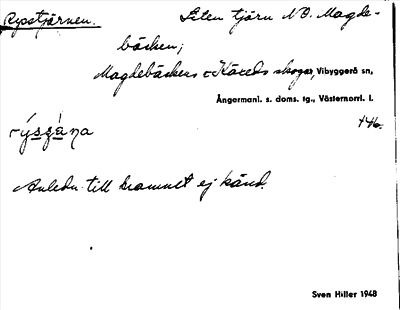 Rypstjärnen. Liten tjärn N.O. Magde-
bäcken;
Magdebäckens o Käxeds skogar, Vibyggerå sn,
Ångermanl. s. doms. tg., Västernorrl. l.
446.
Anledn. till namnet ej känd.
Sven Hiller 1948